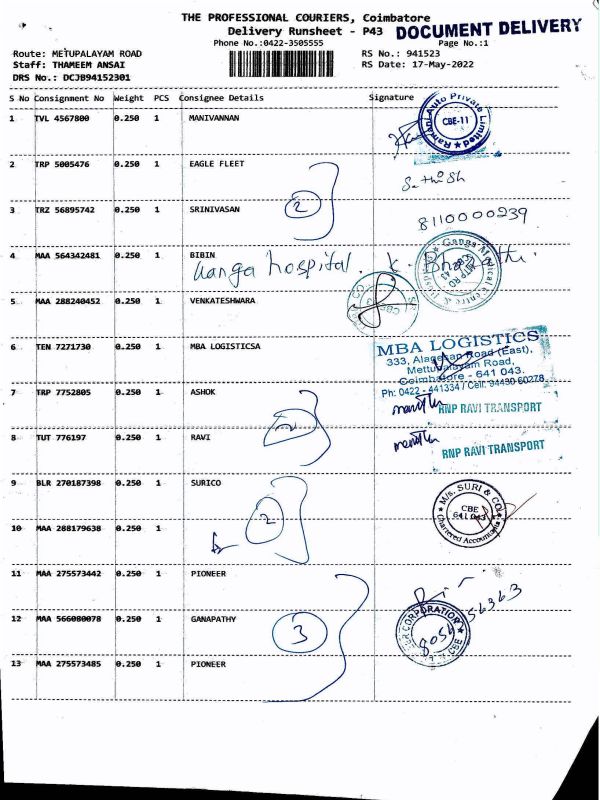 THE PROFESSIONAL COURIERS, Coimbatore
Delivery Runsheet - P43
DOCUMENT DELIVERY
Phone No.:0422-3505555
Page No.:1
Route: METUPALAYAM ROAD
RS No.: 941523
Staff: THAMEEM ANSAI
RS Date: 17-May-2022
DRS No.: DCJB94152301
S No Consignment No Weight PCS Consignee Details Signature
1 TVL 4567800 0.250 1 MANIVANNAN
Ramani Auto Private Limited
CBE-11
2 TRP 5005476 0.250 1 EAGLE FLEET
Sathish
2
3 TRZ 56895742 0.250 1 SRINIVASAN
8110000239
4 MAA 564342481 0.250 1 BIBIN
Ganga hospital. K.
Ganga Medical Centre &
MTP RD
5 MAA 288240452 0.250 1 VENKATESHWARA
6 TEN 7271730 0.250 1 MBA LOGISTICSA
MBA LOGISTICS
333, Alagesan Road (East),
Mettupalayam Road,
Coimbatore - 641 043.
Ph: 0422 - 441334 / Cell: 94430 60278
7 TRP 7752805 0.250 1 ASHOK
RNP RAVI TRANSPORT
2
8 TUT 776197 0.250 1 RAVI
RNP RAVI TRANSPORT
9 BLR 270187398 0.250 1 SURICO
M/s. SURI & CO.
CBE
641 043
Chartered Accountants
2
10 MAA 288179638 0.250 1
11 MAA 275573442 0.250 1 PIONEER
12 MAA 566080078 0.250 1 GANAPATHY
3
CORPORATION
8056 56363
CBE
13 MAA 275573485 0.250 1 PIONEER